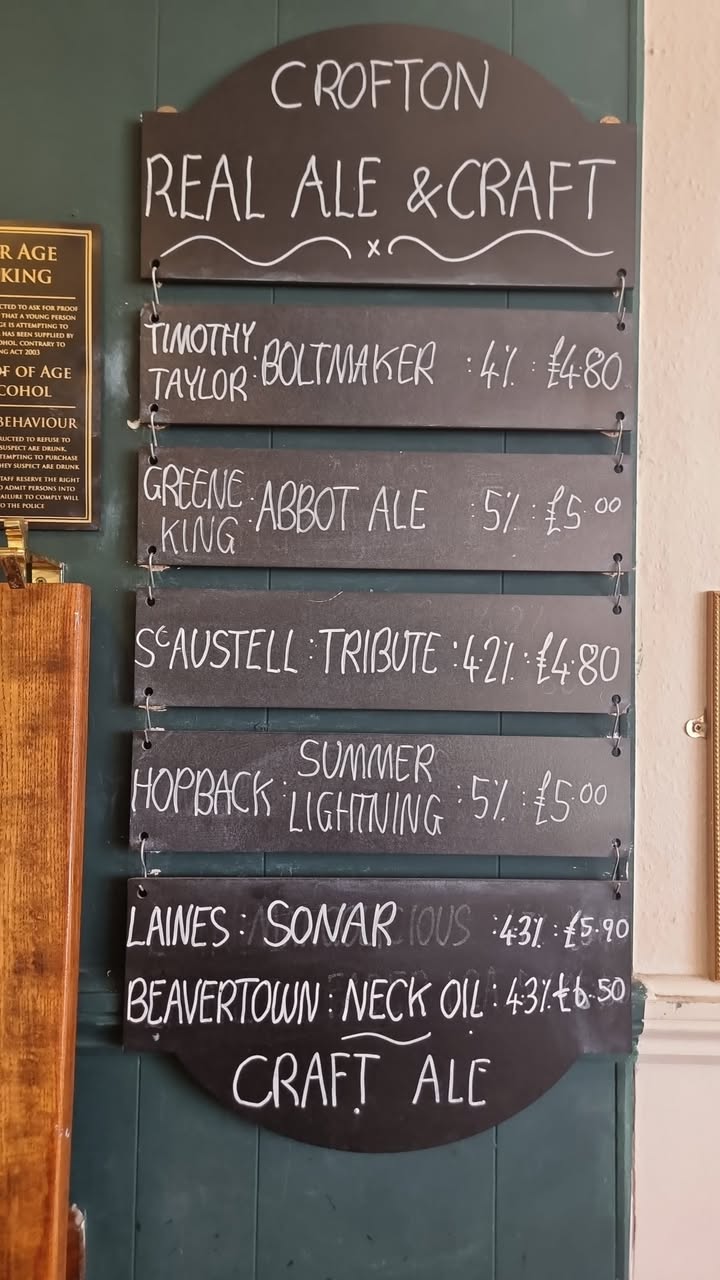 CROFTON
REAL ALE & CRAFT
x
TIMOTHY TAYLOR : BOLTMAKER : 4% : £4.80
GREENE KING : ABBOT ALE : 5% : £5.00
St AUSTELL : TRIBUTE : 4.2% : £4.80
HOPBACK : SUMMER LIGHTNING : 5% : £5.00
LAINES : SONAR : 4.3% : £5.90
BEAVERTOWN : NECK OIL : 4.3% £6.50
CRAFT ALE
R AGE
KING
CTED TO ASK FOR PROOF
THAT A YOUNG PERSON
GE IS ATTEMPTING TO
HAS BEEN SUPPLIED BY
OHOL, CONTRARY TO
NG ACT 2003
OF OF AGE
COHOL
BEHAVIOUR
RUCTED TO REFUSE TO
SUSPECT ARE DRUNK,
TEMPTING TO PURCHASE
HEY SUSPECT ARE DRUNK
TAFF RESERVE THE RIGHT
O ADMIT PERSONS INTO
AILURE TO COMPLY WILL
O THE POLICE